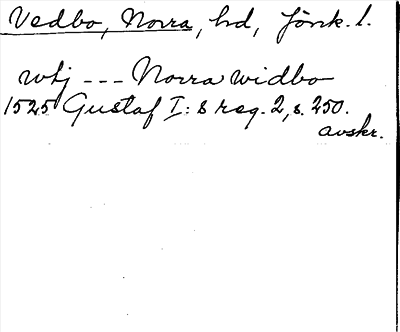 Vedbo, Norra, hd, Jönk. l.
wtj --- Norra widbo
1525 Gustaf I: s reg. 2, s. 250.
avskr.